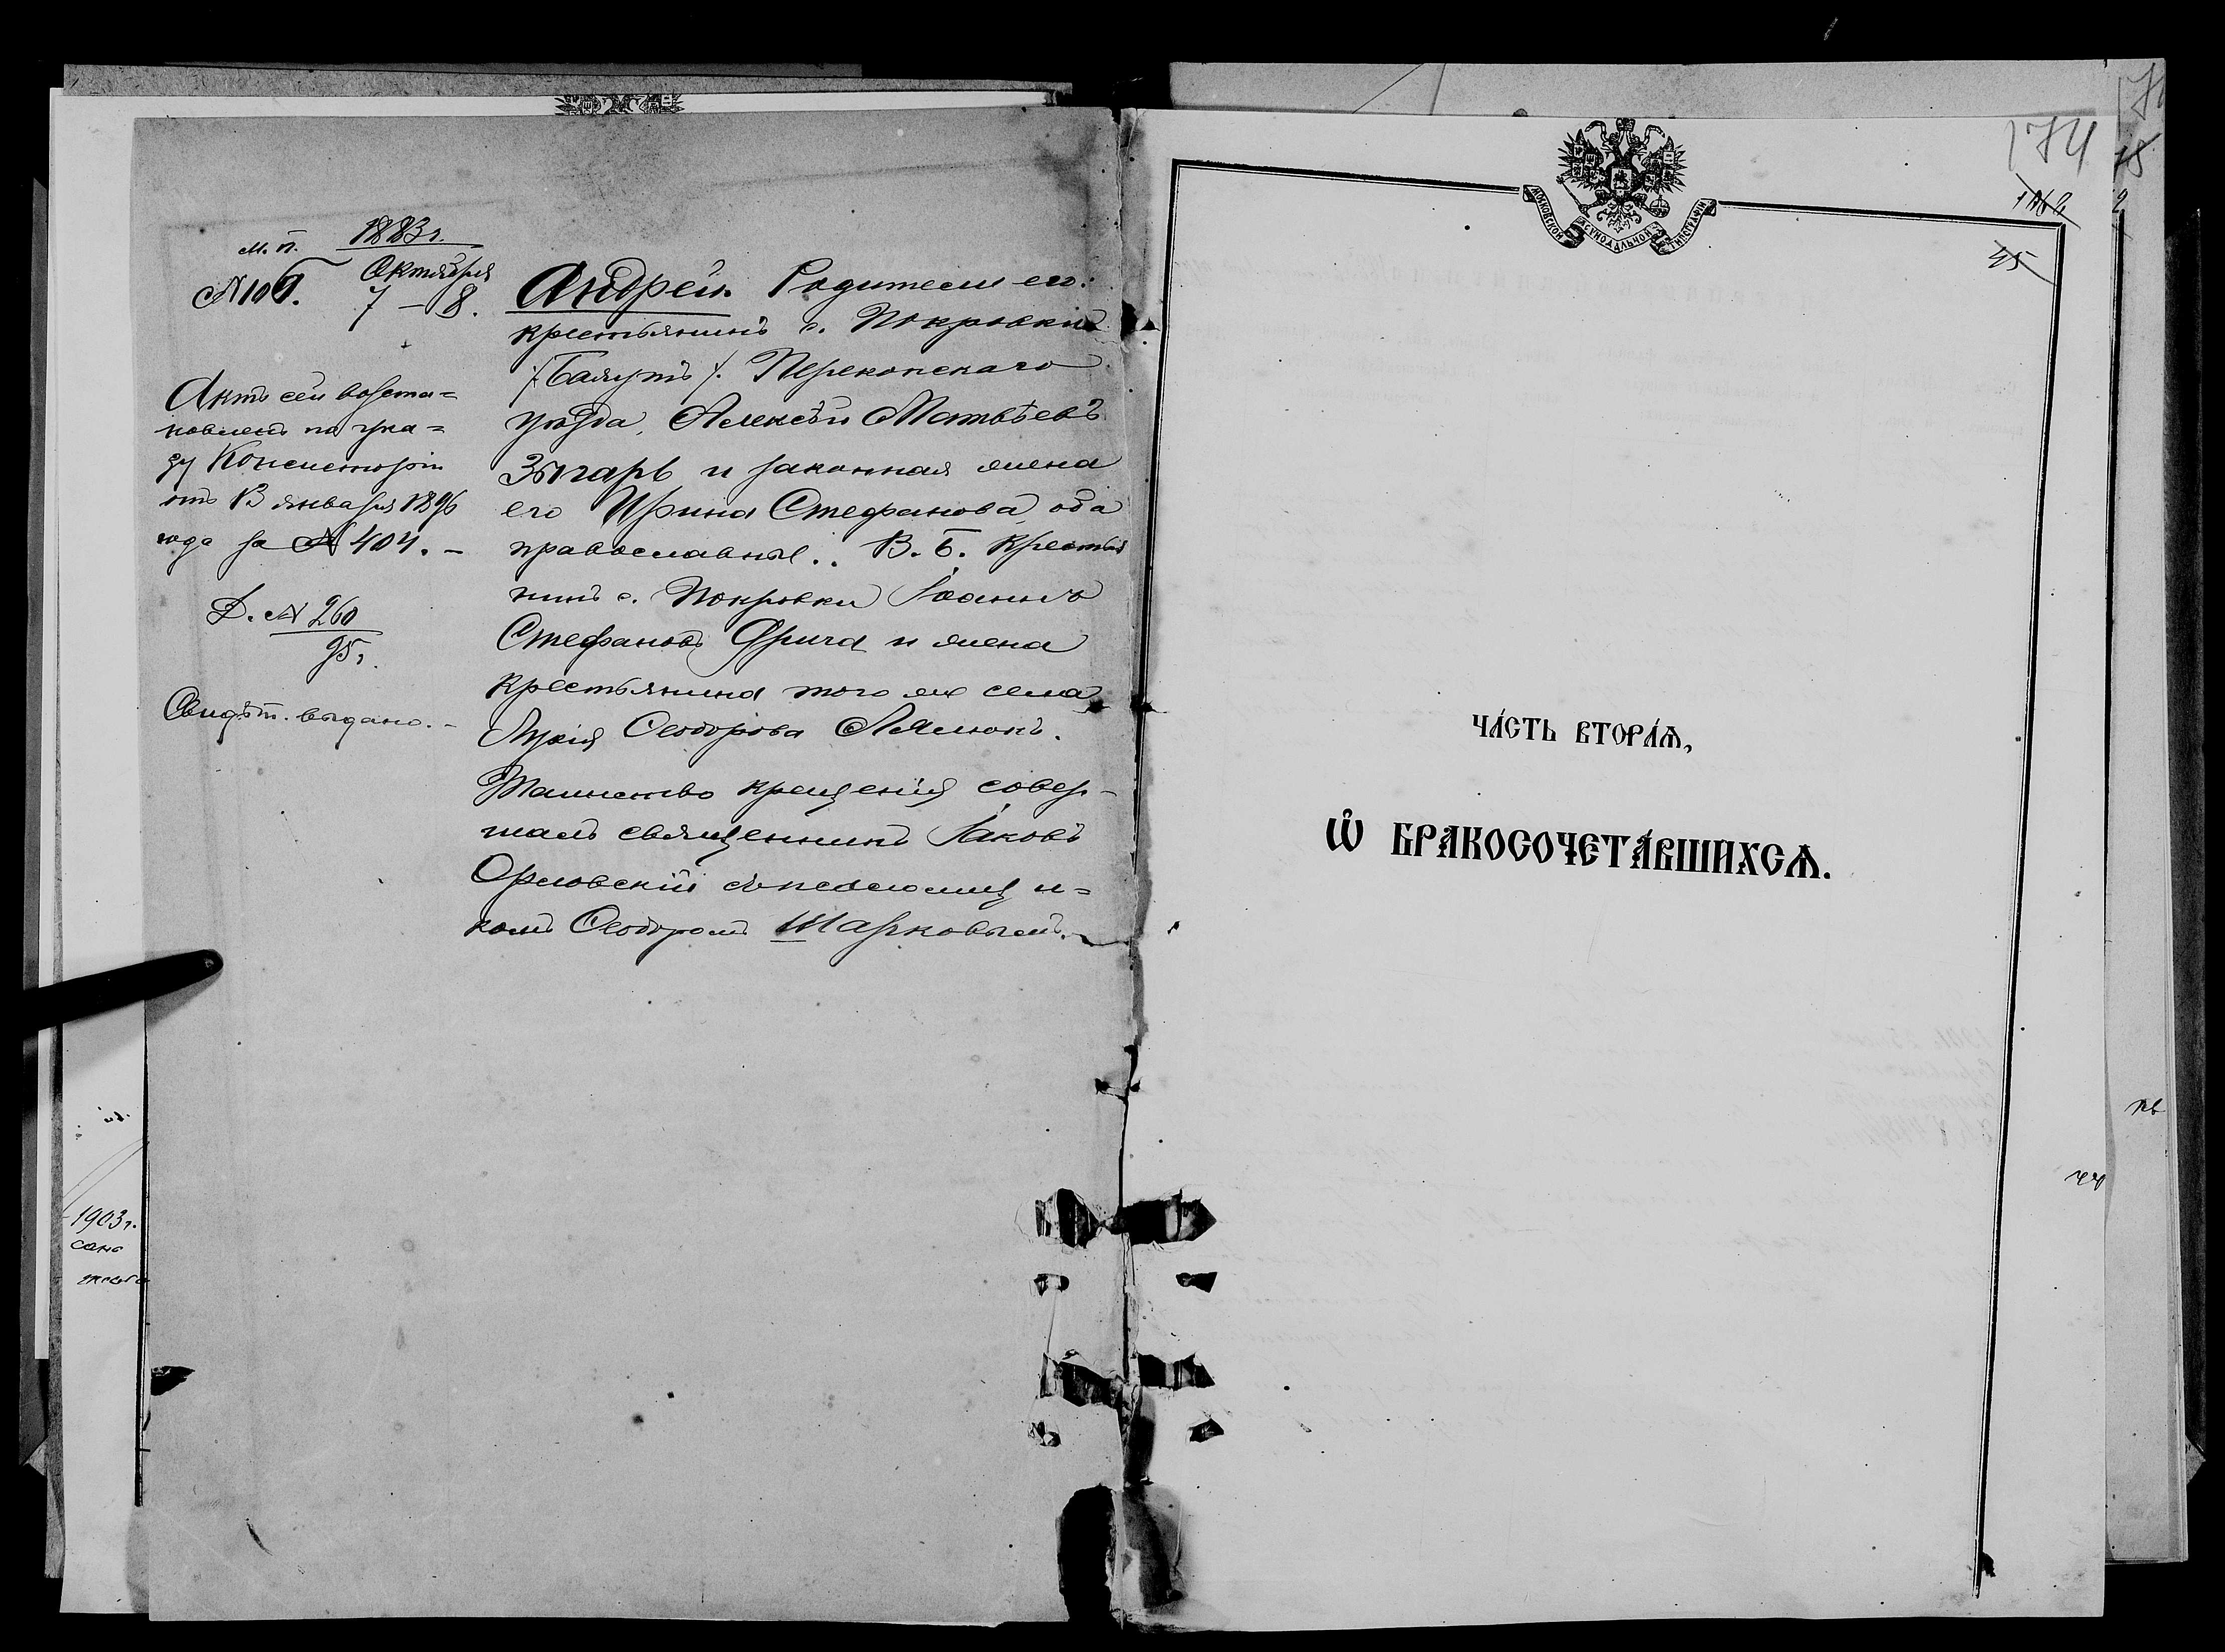 М. п.
№ 106.
1883 г.
Октября
7 – 8.
Актъ сей возста=
новленъ по ука=
зу Консисторіи
отъ 13 января 1896
года за № 404. –
Д. № 260
95 г.
Свидѣт. выдано. –
Андрей. Родители его:
крестьянинъ с. Покровки
/Балутъ/. Перекопскаго
уѣзда, Алексѣй Матвѣевъ
Зыгарь и законная жена
его Ирина Стефанова, оба
православные.. В. б. Крестья
нинъ с. Покровки Іоаннъ
Стефановъ Фрича и жена
крестьянина того же села
Лукія Ѳеодорова
Таинство крещенія совер-
шалъ священникъ Іаковъ
Орловскій съ псаломщи=
комъ Ѳеодоромъ Шарковымъ.
1903 г.
174
45
МОСКОВСКОЙ СѴНОДАЛЬНОЙ ТИПОГРАФІИ
ЧА́СТЬ ВТОРА́Ѧ,
Ѽ БРАКОСОЧЕТА́ВШИХСѦ.